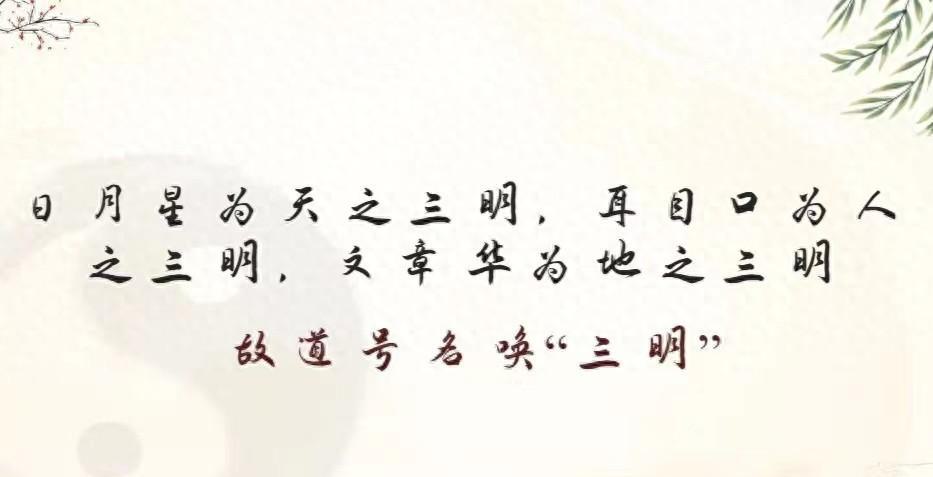 日月星为天之三明，耳目口为人
之三明，文章华为地之三明
故道号名唤“三明”